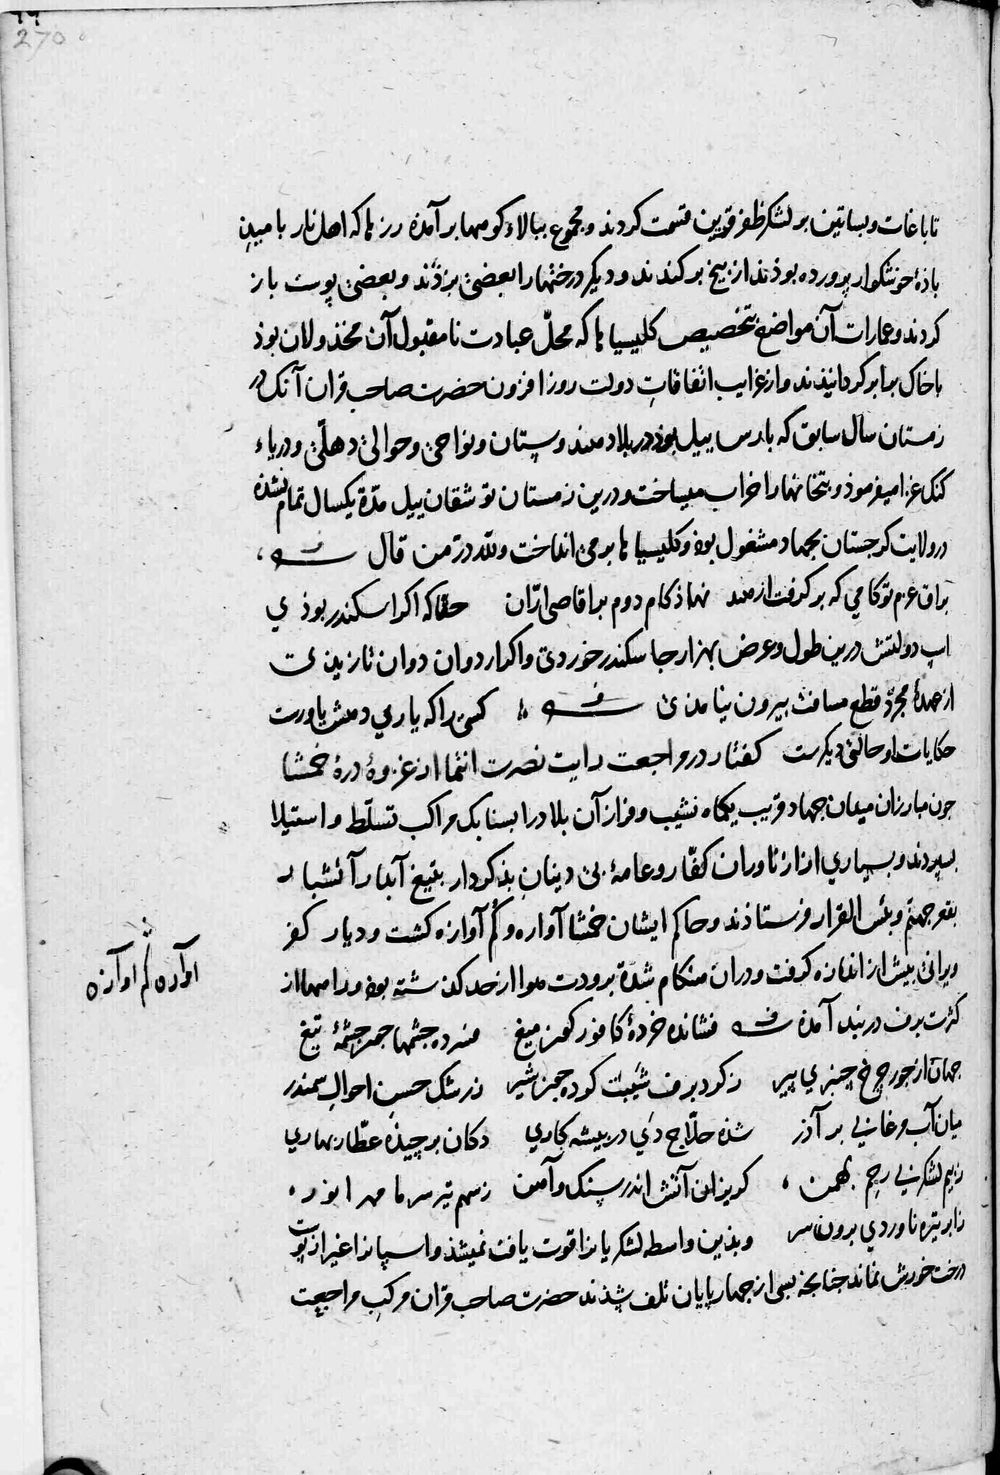 270
تا باغات و بساتین بر لشکر ظفر قرین قسمت کردند و مجموع ببالاء کوهها بر آمده رزها که اهل نار بامید
باذهٔ خوشکوار پرورده بوذند از بیخ بر کندند و دیکر درختها را بعضی بزذند و بعضی پوست باز
کردند و عمارات آن مواضع بتخصیص کلیسیاها که محلّ عبادت نا مقبول آن مخذولان بوذ
با خاک برابر کردانیذند و از غرایب اتفاقات دولت روز افزون حضرت صاحب قران آنک در
زمستان سال سابق که بارس ییل بوذ در بلاد هندوستان و نواحی و حوالی دهلی و دریاء
کنک غزا میفرموذ و بتخانها را خراب میساخت و درین زمستان توشقان ییل مدّة یکسال تمام نشده
در ولایت کرجستان بجهاد مشغول بوذ و کلیسیاها بر می انداخت و للّه درّ من قال
براق عزم تو کامی که بر کرفت از هند نهاذ کام دوم بر اقاصی ارّان حقّا که اکر اسکندر بوذی
اسپ دولتش درین طول و عرض بهزار جا سکندر خوردی و اکر اردوان دوان تا زین
از عهدهٔ مجرّد قطع مسافت بیرون نیامذی کسی را که یاری دهش یاورست
حکایات او حالتی دیکرست کفتار در مراجعت رایت نصرت انتما از غزوهٔ درهٔ خمشا
جون مبارزان میدان جهاد قریب یکماه نشیب و فراز آن بلاد را بسنابک مراکب تسلّط و استیلا
بسپردند و بسیاری از ارناوران کفّار و عامهٔ بی دینان بذ کردار بتیغ آبدار آتشبار
بقعر جهنّم و بئس القرار فرستاذند و حاکم ایشان خمشا آواره و کُم آوازه کشت و دیار کفر
ویرانی بیش از اندازه کرفت و دران هنکام شدّة برودت هوا از حد کذشته بوذ و راهها از
کثرت برف در بند آمذه فشانده خردهٔ کافور کهر میغ فسرده جشمها جمر جشمهٔ تیغ
جهان از جور چرخ چنبری پیر ز کرد برف شیبت کرده جمر شیر ز رشک حسن احوال سمندر
میان آب مرغان بر آذر شذه حلّاج دَی در بیشه کاری دکان برچیذه عطّار بهاری
ز بیم لشکر بی رحم بهمن کریزان آتش اندر سنک و آهن ز سهم تیر سرما مهر انور
ز ابر تیره ناوردی برون سر و بذین واسطه لشکریان را قوت یافت نمیشذ و اسپان را غیر از پوست
درخت خورش نماند جنانجه بسی از جهار پایان تلف شذند حضرت صاحب قران مرکب مراجعت
آواره کُم اوآزه